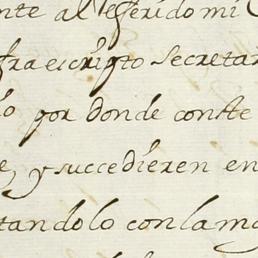 nte al Referido mi
fraescripto Secretar
por donde conste
y succedieren en
tandolo con la ma